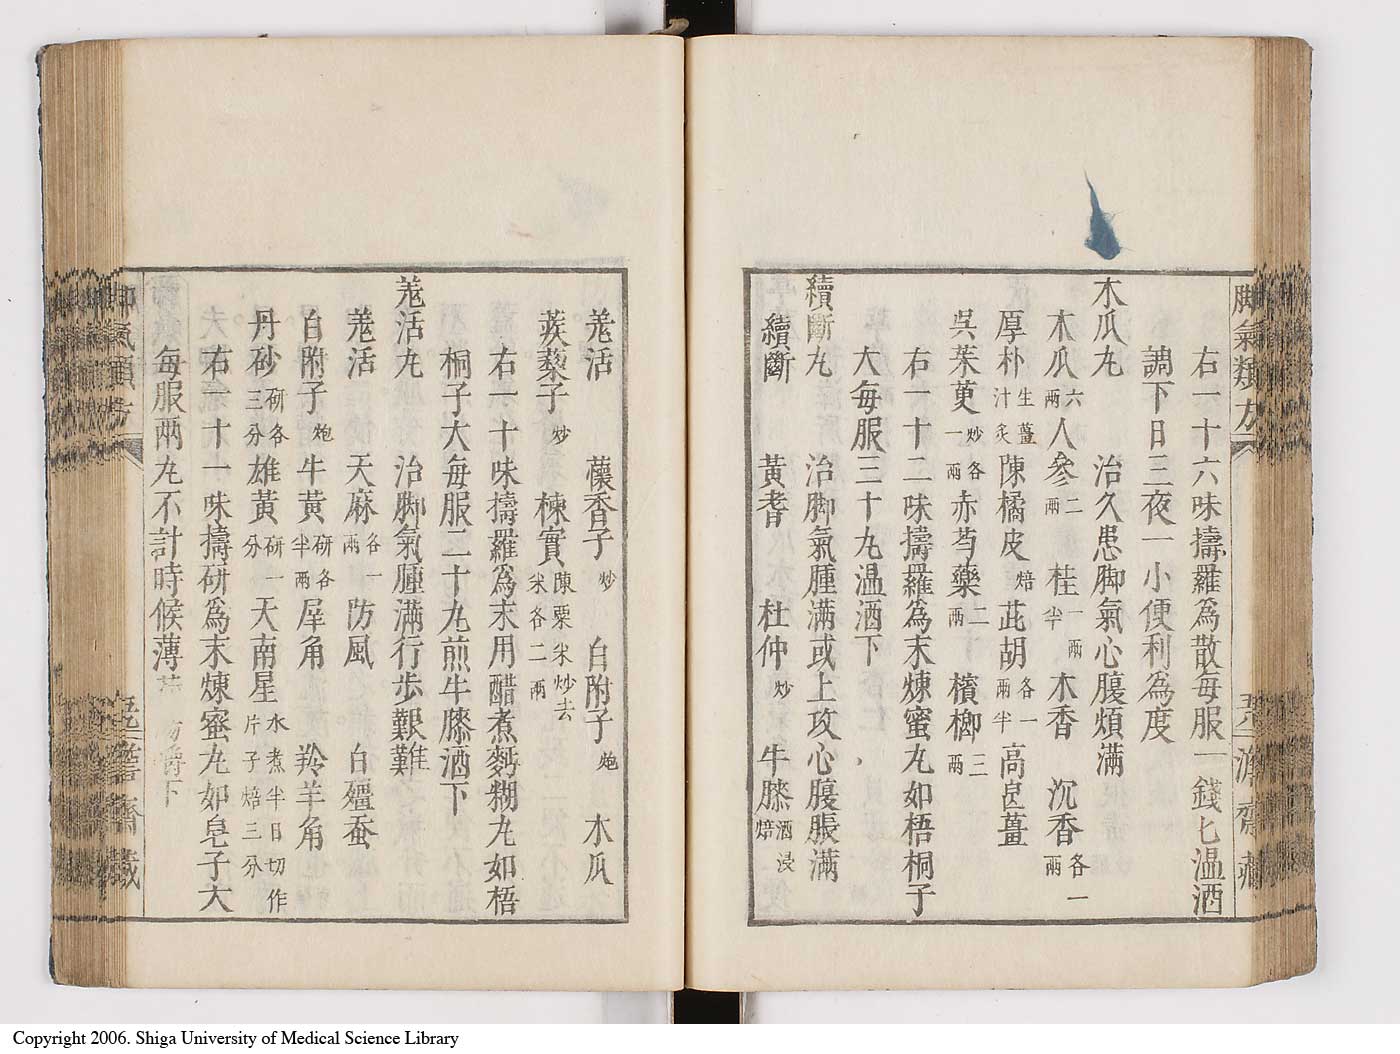 脚氣類方
右一十六味擣羅爲散每服一錢匕温酒
調下日三夜一小便利爲度
木瓜丸　治久患脚氣心腹煩滿
木瓜六兩　人參二兩　桂一兩半　木香　沉香各一兩
厚朴生薑汁炙　陳橘皮焙　茈胡各一兩半　高良薑
吳茱萸炒各一兩　赤芍藥二兩　檳榔三兩
右一十二味擣羅爲末煉蜜丸如梧桐子
大每服三十丸温酒下
續斷丸　治脚氣腫滿或上攻心腹脹滿
續斷　黃耆　杜仲炒　牛膝酒浸焙
羗活　蘹香子炒　白附子炮　木瓜
蒺䔧子炒　楝實陳粟米炒去米各二兩
右一十味擣羅爲末用醋煮麪糊丸如梧
桐子大每服二十丸煎牛膝酒下
羗活丸　治脚氣腫滿行步艱難
羗活　天麻各一兩　防風　白殭蚕
白附子炮　牛黃研各半兩　犀角　羚羊角
丹砂研各三分　雄黃研一分　天南星水煮半日切作片子焙三分
右一十一味擣研爲末煉宻丸如皂子大
每服兩丸不計時候薄
嚼下
脚氣類方
藏
Copyright 2006. Shiga University of Medical Science Library